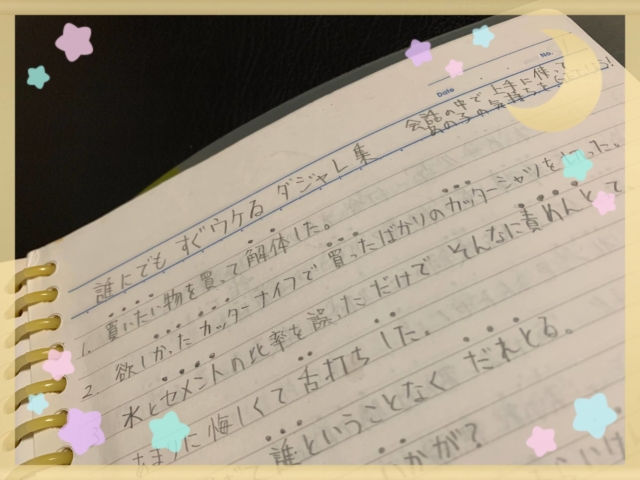 No.
Date
会話の中で上手に使って
女の子の気持ちを
誰にでも すぐウケる ダジャレ集
1. 買いたい物を買って解体した。
2. 欲しかったカッターナイフで買ったばかりのカッターシャツを切った。
水とセメントの比率を誤っただけで そんなに責めんとって
あまりに悔しくて舌打ちした。
誰ということなく だれとる。
いかが?